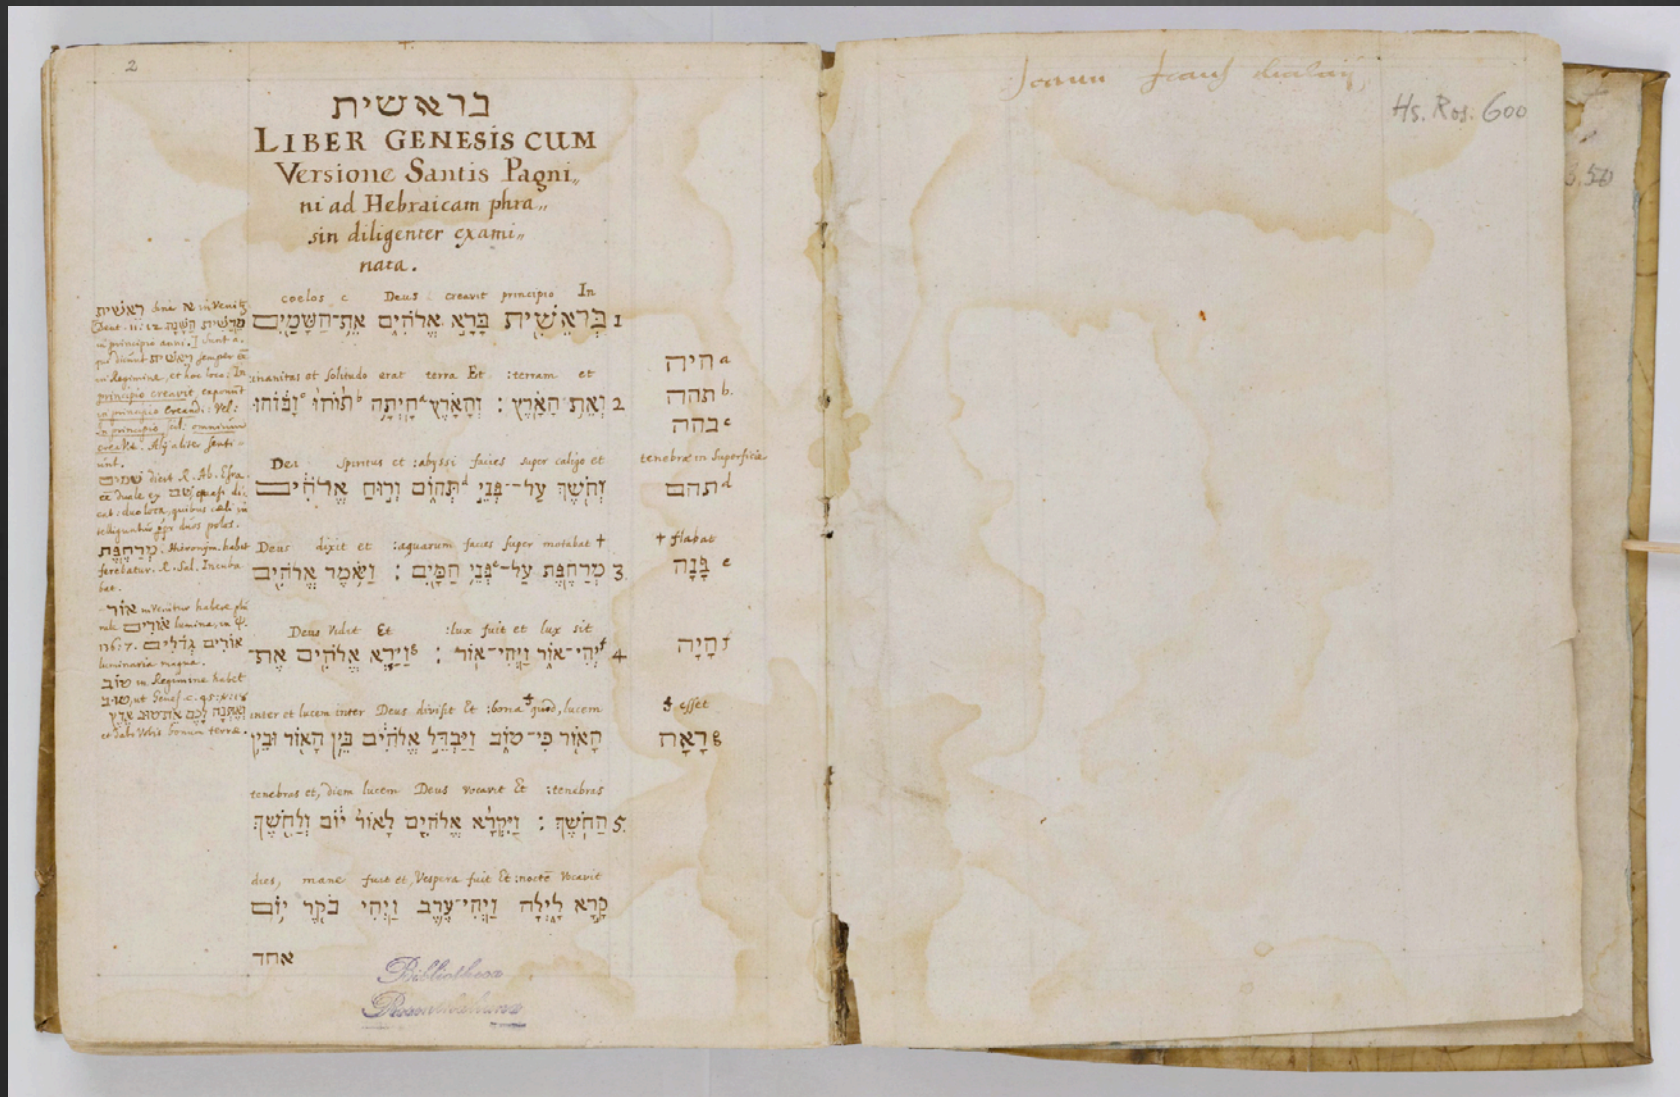 2
בראשית
LIBER GENESIS CUM
Versione Santis Pagni„
ni ad Hebraicam phra„
sin diligenter exami„
nata.
coelos e Deus creavit principio In
בְּרֵאשִׁ֖ית בָּרָ֣א אֱלֹהִ֑ים אֵ֥ת הַשָּׁמַ֖יִם 1
inanitas et solitudo erat terra Et :terram et
וְאֵ֥ת הָאָֽרֶץ : וְהָאָ֗רֶץ הָיְתָ֥ה תֹ֙הוּ֙ וָבֹ֔הוּ 2
Dei Spiritus et :abyssi facies super caligo et
וְחֹ֖שֶׁךְ עַל־פְּנֵ֣י תְה֑וֹם וְר֣וּחַ אֱלֹהִ֔ים
Deus dixit et :aquarum facies super motabat †
מְרַחֶ֖פֶת עַל־פְּנֵ֥י הַמָּֽיִם : וַיֹּ֥אמֶר אֱלֹהִ֖ים 3
Deus vidit Et :lux fuit et lux sit
יְהִי־א֑וֹר וַֽיְהִי־אֽוֹר : וַיַּ֧רְא אֱלֹהִ֛ים אֶת־ 4
inter et lucem inter Deus divisit Et :bona quod, lucem
הָא֖וֹר כִּי־ט֑וֹב וַיַּבְדֵּ֣ל אֱלֹהִ֔ים בֵּ֥ין הָא֖וֹר וּבֵ֥ין
tenebras et, diem lucem Deus vocavit Et :tenebras
הַחֹֽשֶׁךְ : וַיִּקְרָ֨א אֱלֹהִ֤ים לָאוֹר֙ י֔וֹם וְלַחֹ֖שֶׁךְ 5.
dies, mane fuit et, Vespera fuit Et :noctē vocavit
קָ֣רָא לָ֑יְלָה וַֽיְהִי־עֶ֥רֶב וַֽיְהִי בֹ֖קֶר י֥וֹם
אחד
ראשית sine א invenit
Deut. 11:12
in principio anni.] Sunt a.
semper
in Regimine, et hoc loco: In
principio creavit, exponunt
in principio creandi. Vel:
In principio omnium
creavit. Alij aliter senti-
unt.
שמים dicit R. Ab. Esra.
duale ex quasi di:
cat: duo loca, quibus coeli in
telliguntur duos polos.
מְרַחֶפֶת. Hieronym. habet
ferebatur. R. Sal. Incuba
bat.
אוֹר invenitur habere plu
rale אוֹרִים lumina, in ψ.
136:7. אוֹרִים גְּדֹלִים
luminaria magna.
טוֹב in Regimine habet
טוּב, ut Genes. c. 45: v: 18
וְאֶתְּנָה לָכֶם אֶת־טוּב אֶרֶץ
et dabo vobis bonum terrae.
היה a
תהה b.
בהה c
tenebrae in Superficie
תהם d
† flabat
פָּנָה e
הָיָה f
‡ esset
רָאָה g
Bibliotheca
Rosenthaliana
Hs. Ros. 600